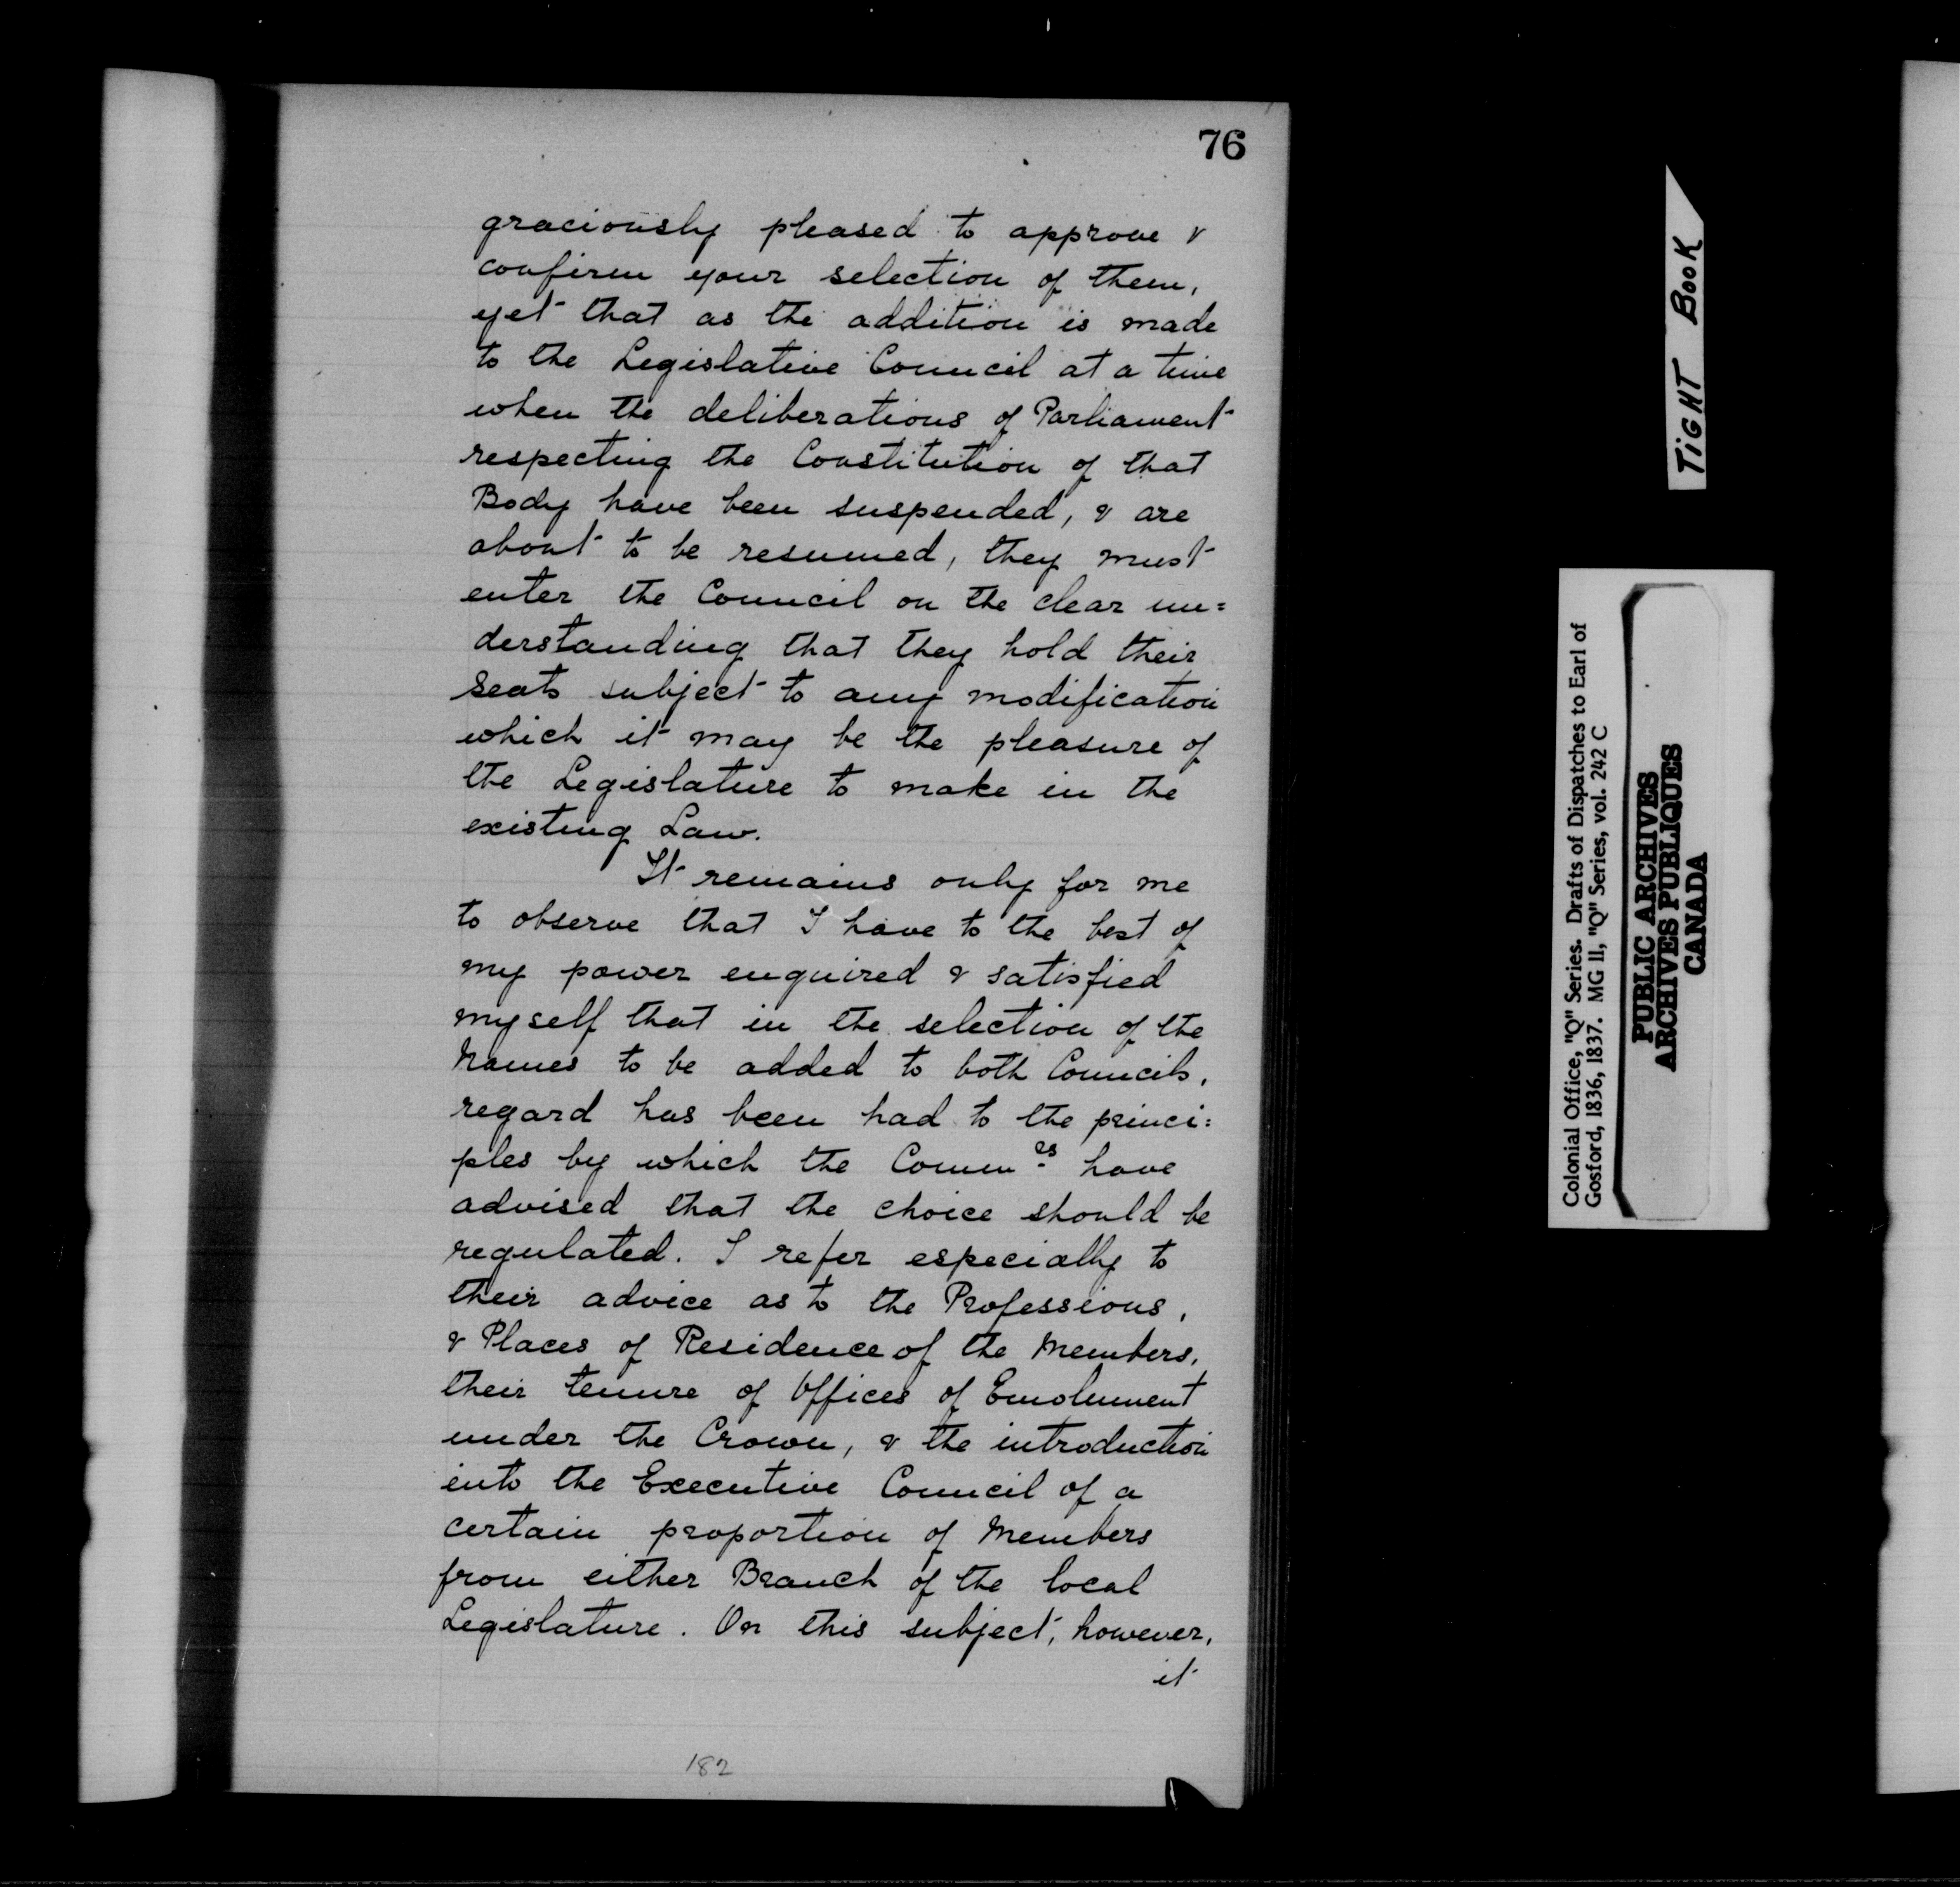 76
graciously pleased to approve &
confirm your selection of them,
yet that as the addition is made
to the Legislative Council at a time
when the deliberations of Parliament
respecting the Constitution of that
Body have been suspended, & are
about to be resumed, they must
enter the Council on the clear un=
derstanding that they hold their
seats subject to any modification
which it may be the pleasure of
the Legislature to make in the
existing Law.
It remains only for me
to observe that I have to the best of
my power enquired & satisfied
myself that in the selection of the
names to be added to both Councils,
regard has been had to the princi=
ples by which the Comm.rs have
advised that the choice should be
regulated. I refer especially to
their advice as to the Professions,
& Places of Residence of the Members,
their tenure of Offices of Emolument
under the Crown, & the introduction
into the Executive Council of a
certain proportion of Members
from either Branch of the local
Legislature. On this subject, however,
it
182
TIGHT BOOK
Colonial Office, "Q" Series. Drafts of Dispatches to Earl of
Gosford, 1836, 1837. MG II, "Q" Series, vol. 242 C
PUBLIC ARCHIVES
ARCHIVES PUBLIQUES
CANADA